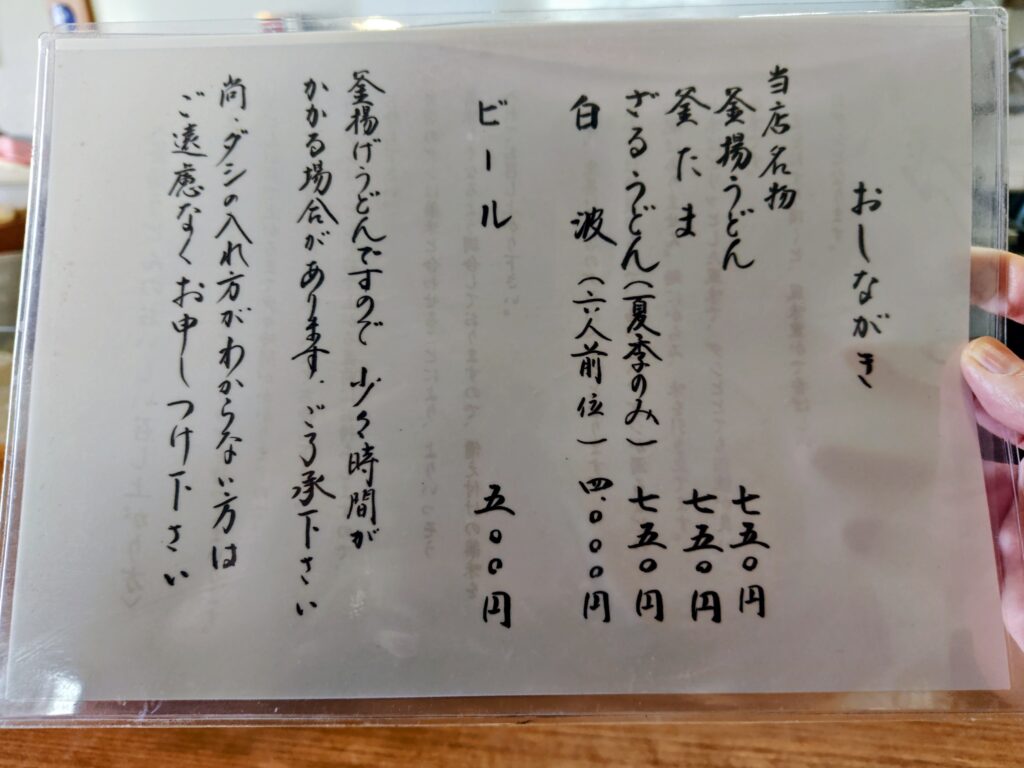 おしながき
当店名物
釜揚うどん 七五〇円
釜たま 七五〇円
ざるうどん(夏季のみ) 七五〇円
白波(六人前位) 四.〇〇〇円
ビール 五〇〇円
釜揚げうどんですので 少々時間が
かかる場合があります.ご了承下さい
尚、ダシの入れ方がわからない方は
ご遠慮なくお申しつけ下さい